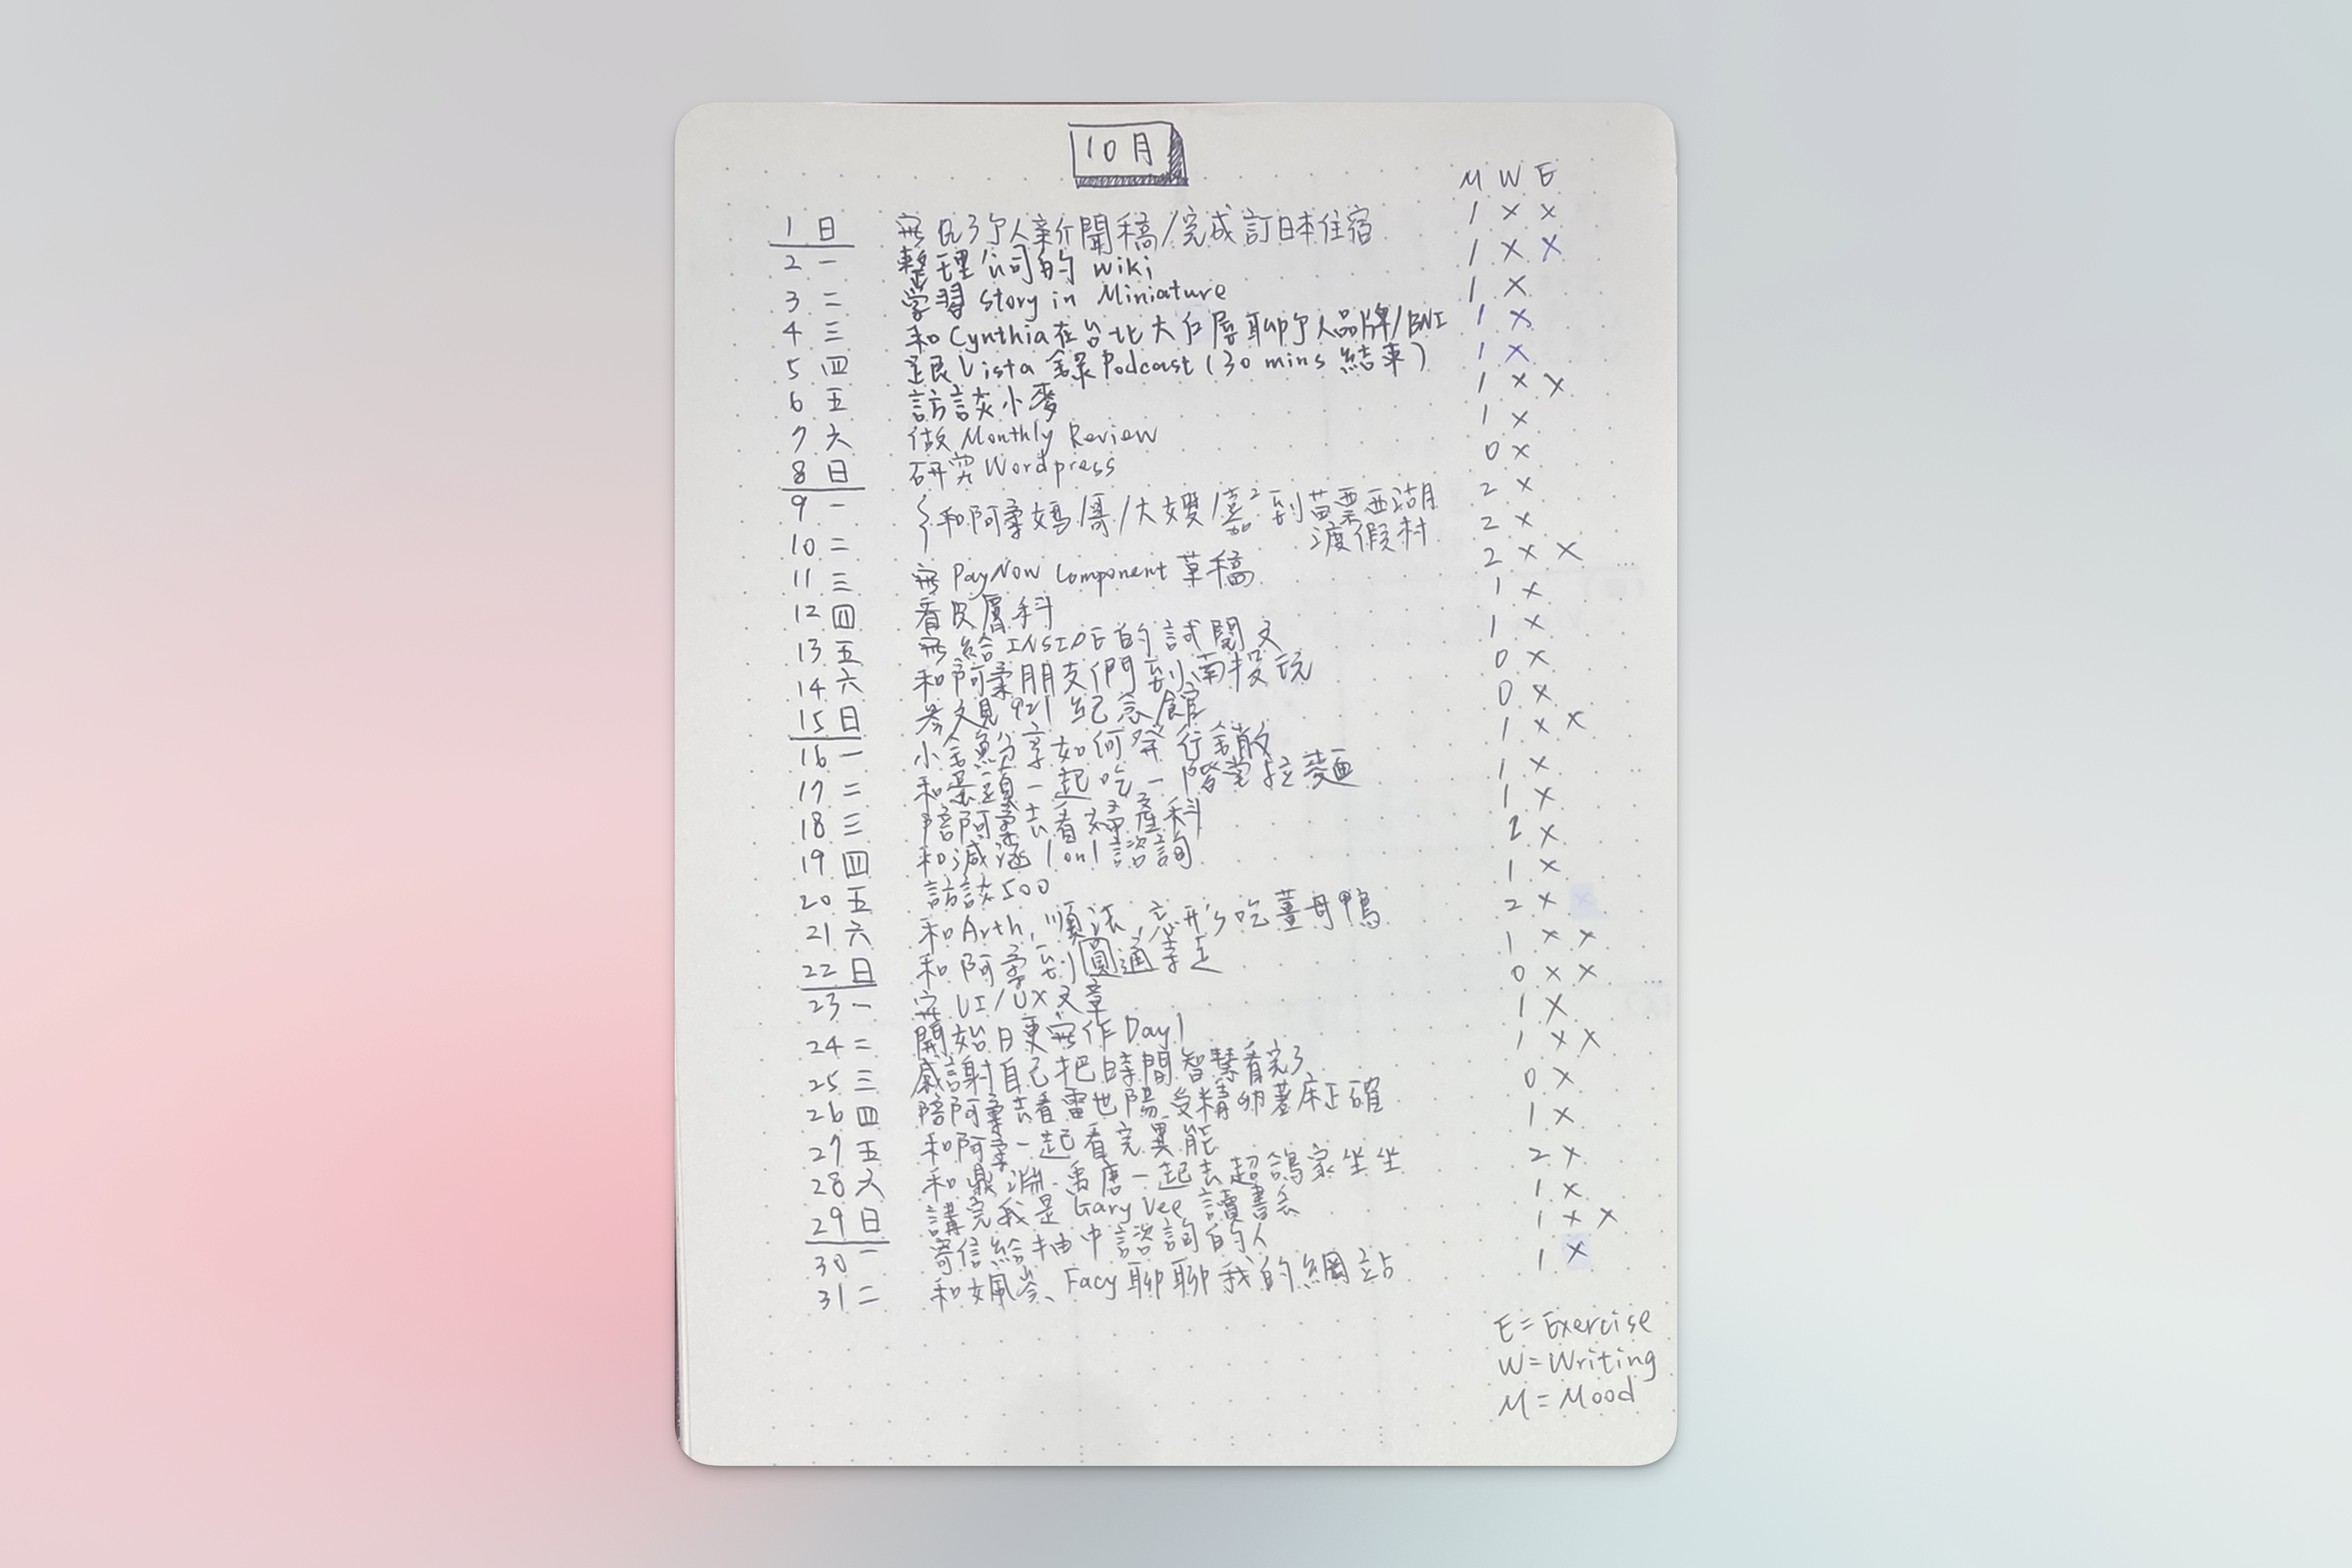 10月
M W E
1 日 寫 個人新聞稿/完成訂日本住宿 1 × ×
2 一 整理公司的 wiki 1 × ×
3 二 学習 Story in Miniature 1 ×
4 三 和 Cynthia 在台北大戶屋聊個人品牌/BNI 1 ×
5 四 跟 Vista 錄 Podcast (30 mins 結束) 1 ×
6 五 訪談小麥 1 × ×
7 六 做 Monthly Review 1 ×
8 日 研究 Wordpress 0 ×
9 一 和阿柔媽/哥/大嫂/嘉² 到苗栗西湖 2 ×
渡假村
10 二 2 ×
11 三 寫 PayNow Component 草稿 2 × ×
12 四 看皮膚科 1 ×
13 五 寫給 INSIDE 的試閱文 1 ×
14 六 和阿柔朋友們到南投玩 0 ×
15 日 参觀 921 紀念館 0 ×
16 一 小金魚分享如何發行銷文 1 × ×
17 二 和 一起吃一階堂拉麵 1 ×
18 三 陪阿柔去看婦產科 1 ×
19 四 和 1on1 諮詢 2 ×
20 五 訪談 500 1 ×
21 六 和 Arth, 忘形吃薑母鴨 2 ×
22 日 和阿柔到圓通寺走 1 × ×
23 一 寫 UI/UX 文章 0 × ×
24 二 開始日更寫作 Day1 1 ×
25 三 感謝自己把時間智慧看完了 1 × ×
26 四 陪阿柔去看 受精卵著床正確 0 ×
27 五 和阿柔一起看完異能 1 ×
28 六 和鼎淵、禹唐一起去超鴿家坐坐 2 ×
29 日 講完我是 Gary Vee 讀書会 1 ×
30 一 寄信給抽中諮詢的人 1 × ×
31 二 和姵岑、Facy 聊聊我的網站 1 ×
E = Exercise
W = Writing
M = Mood